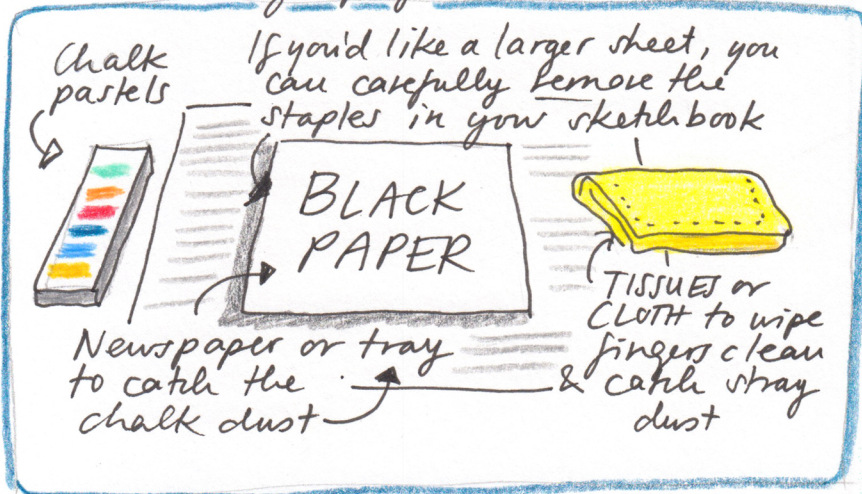 Chalk
pastels
If you'd like a larger sheet, you
can carefully remove the
staples in your sketchbook
BLACK
PAPER
Newspaper or tray
to catch the
chalk dust
TISSUES or
CLOTH to wipe
fingers clean
& catch stray
dust